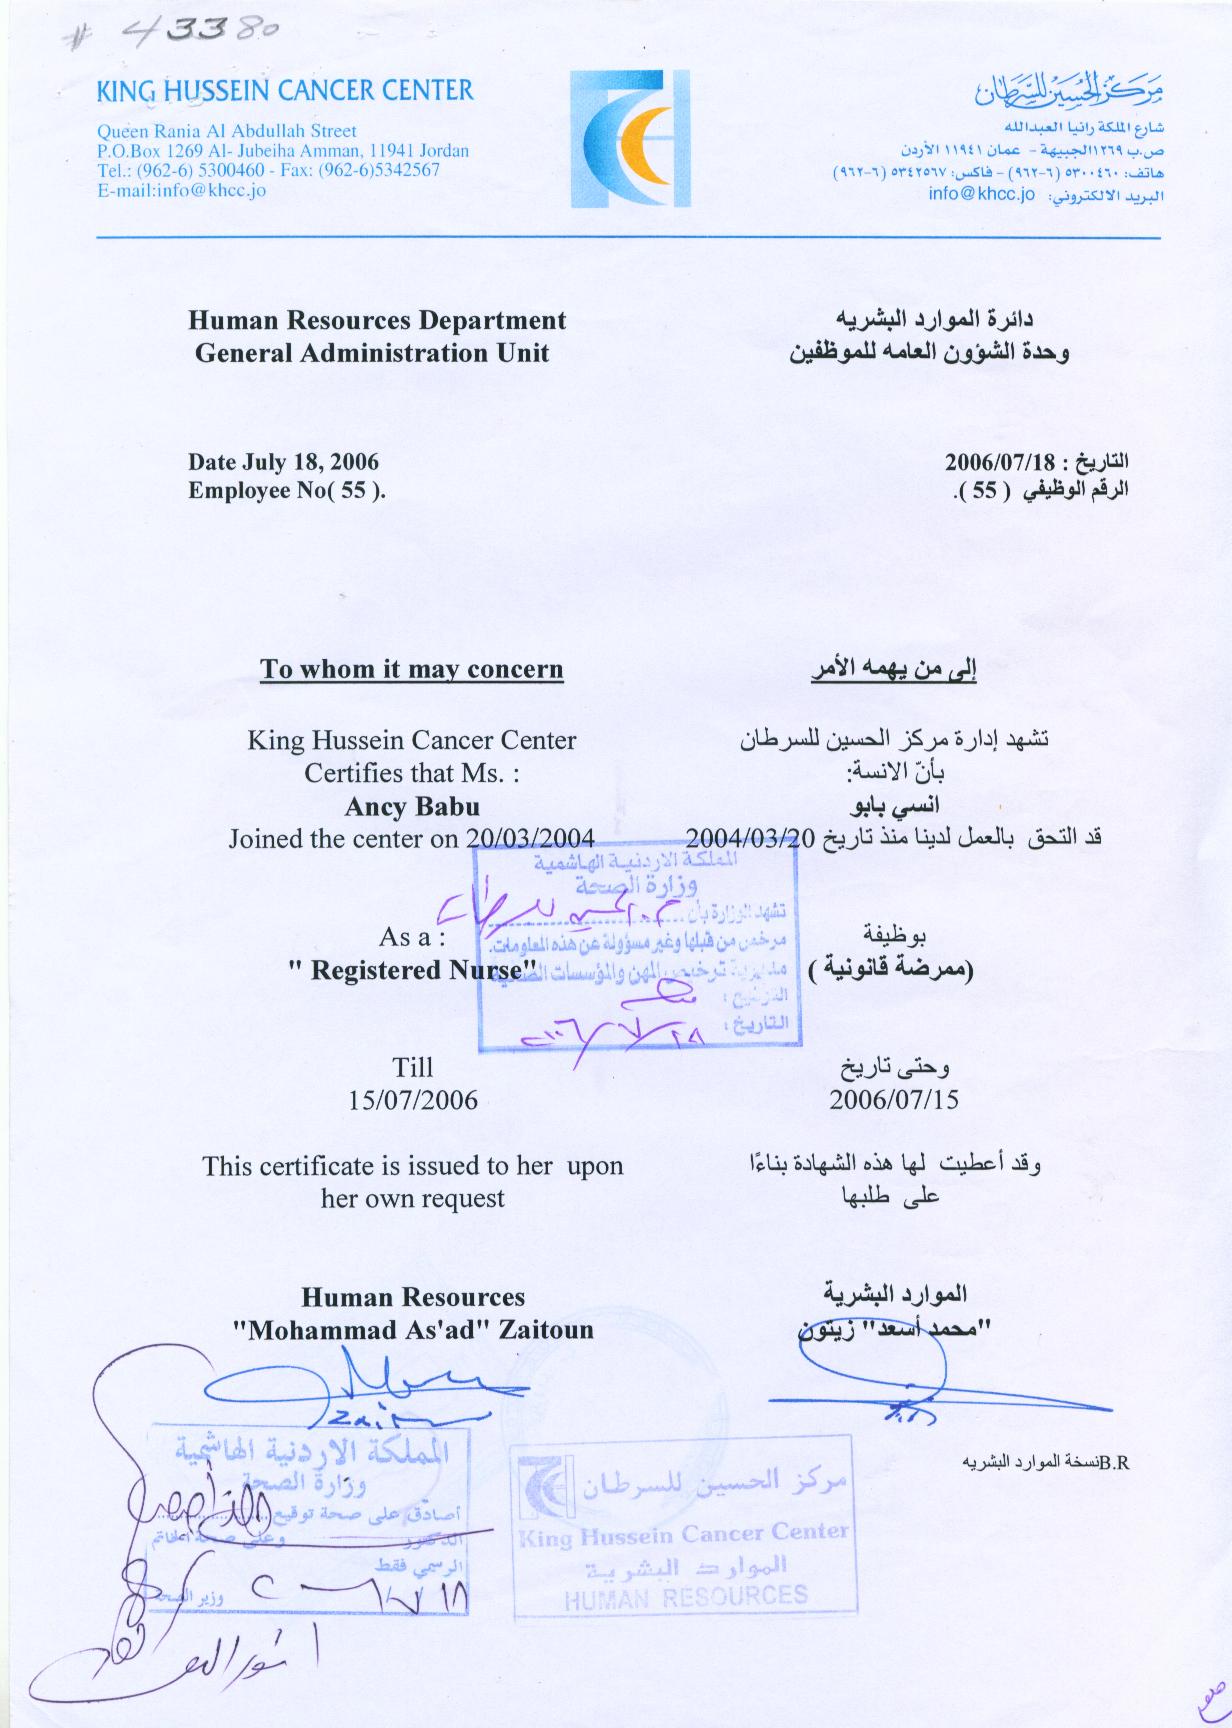 # 43380
KING HUSSEIN CANCER CENTER
Queen Rania Al Abdullah Street
P.O.Box 1269 Al- Jubeiha Amman, 11941 Jordan
Tel.: (962-6) 5300460 - Fax: (962-6)5342567
E-mail:info@khcc.jo
مركز الحسين للسرطان
شارع الملكة رانيا العبدالله
ص.ب ١٢٦٩الجبيهة - عمان ١١٩٤١ الأردن
هاتف: ٥٣٠٠٤٦٠ (٦-٩٦٢) - فاكس: ٥٣٤٢٥٦٧ (٦-٩٦٢)
البريد الالكتروني: info@khcc.jo
Human Resources Department
General Administration Unit
دائرة الموارد البشريه
وحدة الشؤون العامه للموظفين
Date July 18, 2006
Employee No( 55 ).
التاريخ : 2006/07/18
الرقم الوظيفي ( 55 ).
To whom it may concern
إلى من يهمه الأمر
King Hussein Cancer Center
Certifies that Ms. :
Ancy Babu
Joined the center on 20/03/2004
تشهد إدارة مركز الحسين للسرطان
بأنّ الانسة:
انسي بابو
قد التحق بالعمل لدينا منذ تاريخ 2004/03/20
المملكة الاردنية الهاشمية
وزارة الصحة
تشهد الوزارة بأن
مرخص من قبلها وغير مسؤولة عن هذه المعلومات.
مديرية ترخيص المهن والمؤسسات الصحية
التوقيع :
التاريخ :
As a :
" Registered Nurse"
بوظيفة
(ممرضة قانونية )
Till
15/07/2006
وحتى تاريخ
2006/07/15
This certificate is issued to her upon
her own request
وقد أعطيت لها هذه الشهادة بناءًا
على طلبها
Human Resources
"Mohammad As'ad" Zaitoun
الموارد البشرية
"محمد أسعد" زيتون
B.Rنسخة الموارد البشريه
المملكة الاردنية الهاشمية
وزارة الصحة
أصادق على صحة توقيع
الدكتور وعلى صحة الخاتم
الرسمي فقط
وزير الصحة
مركز الحسين للسرطان
King Hussein Cancer Center
الموارد البشرية
HUMAN RESOURCES